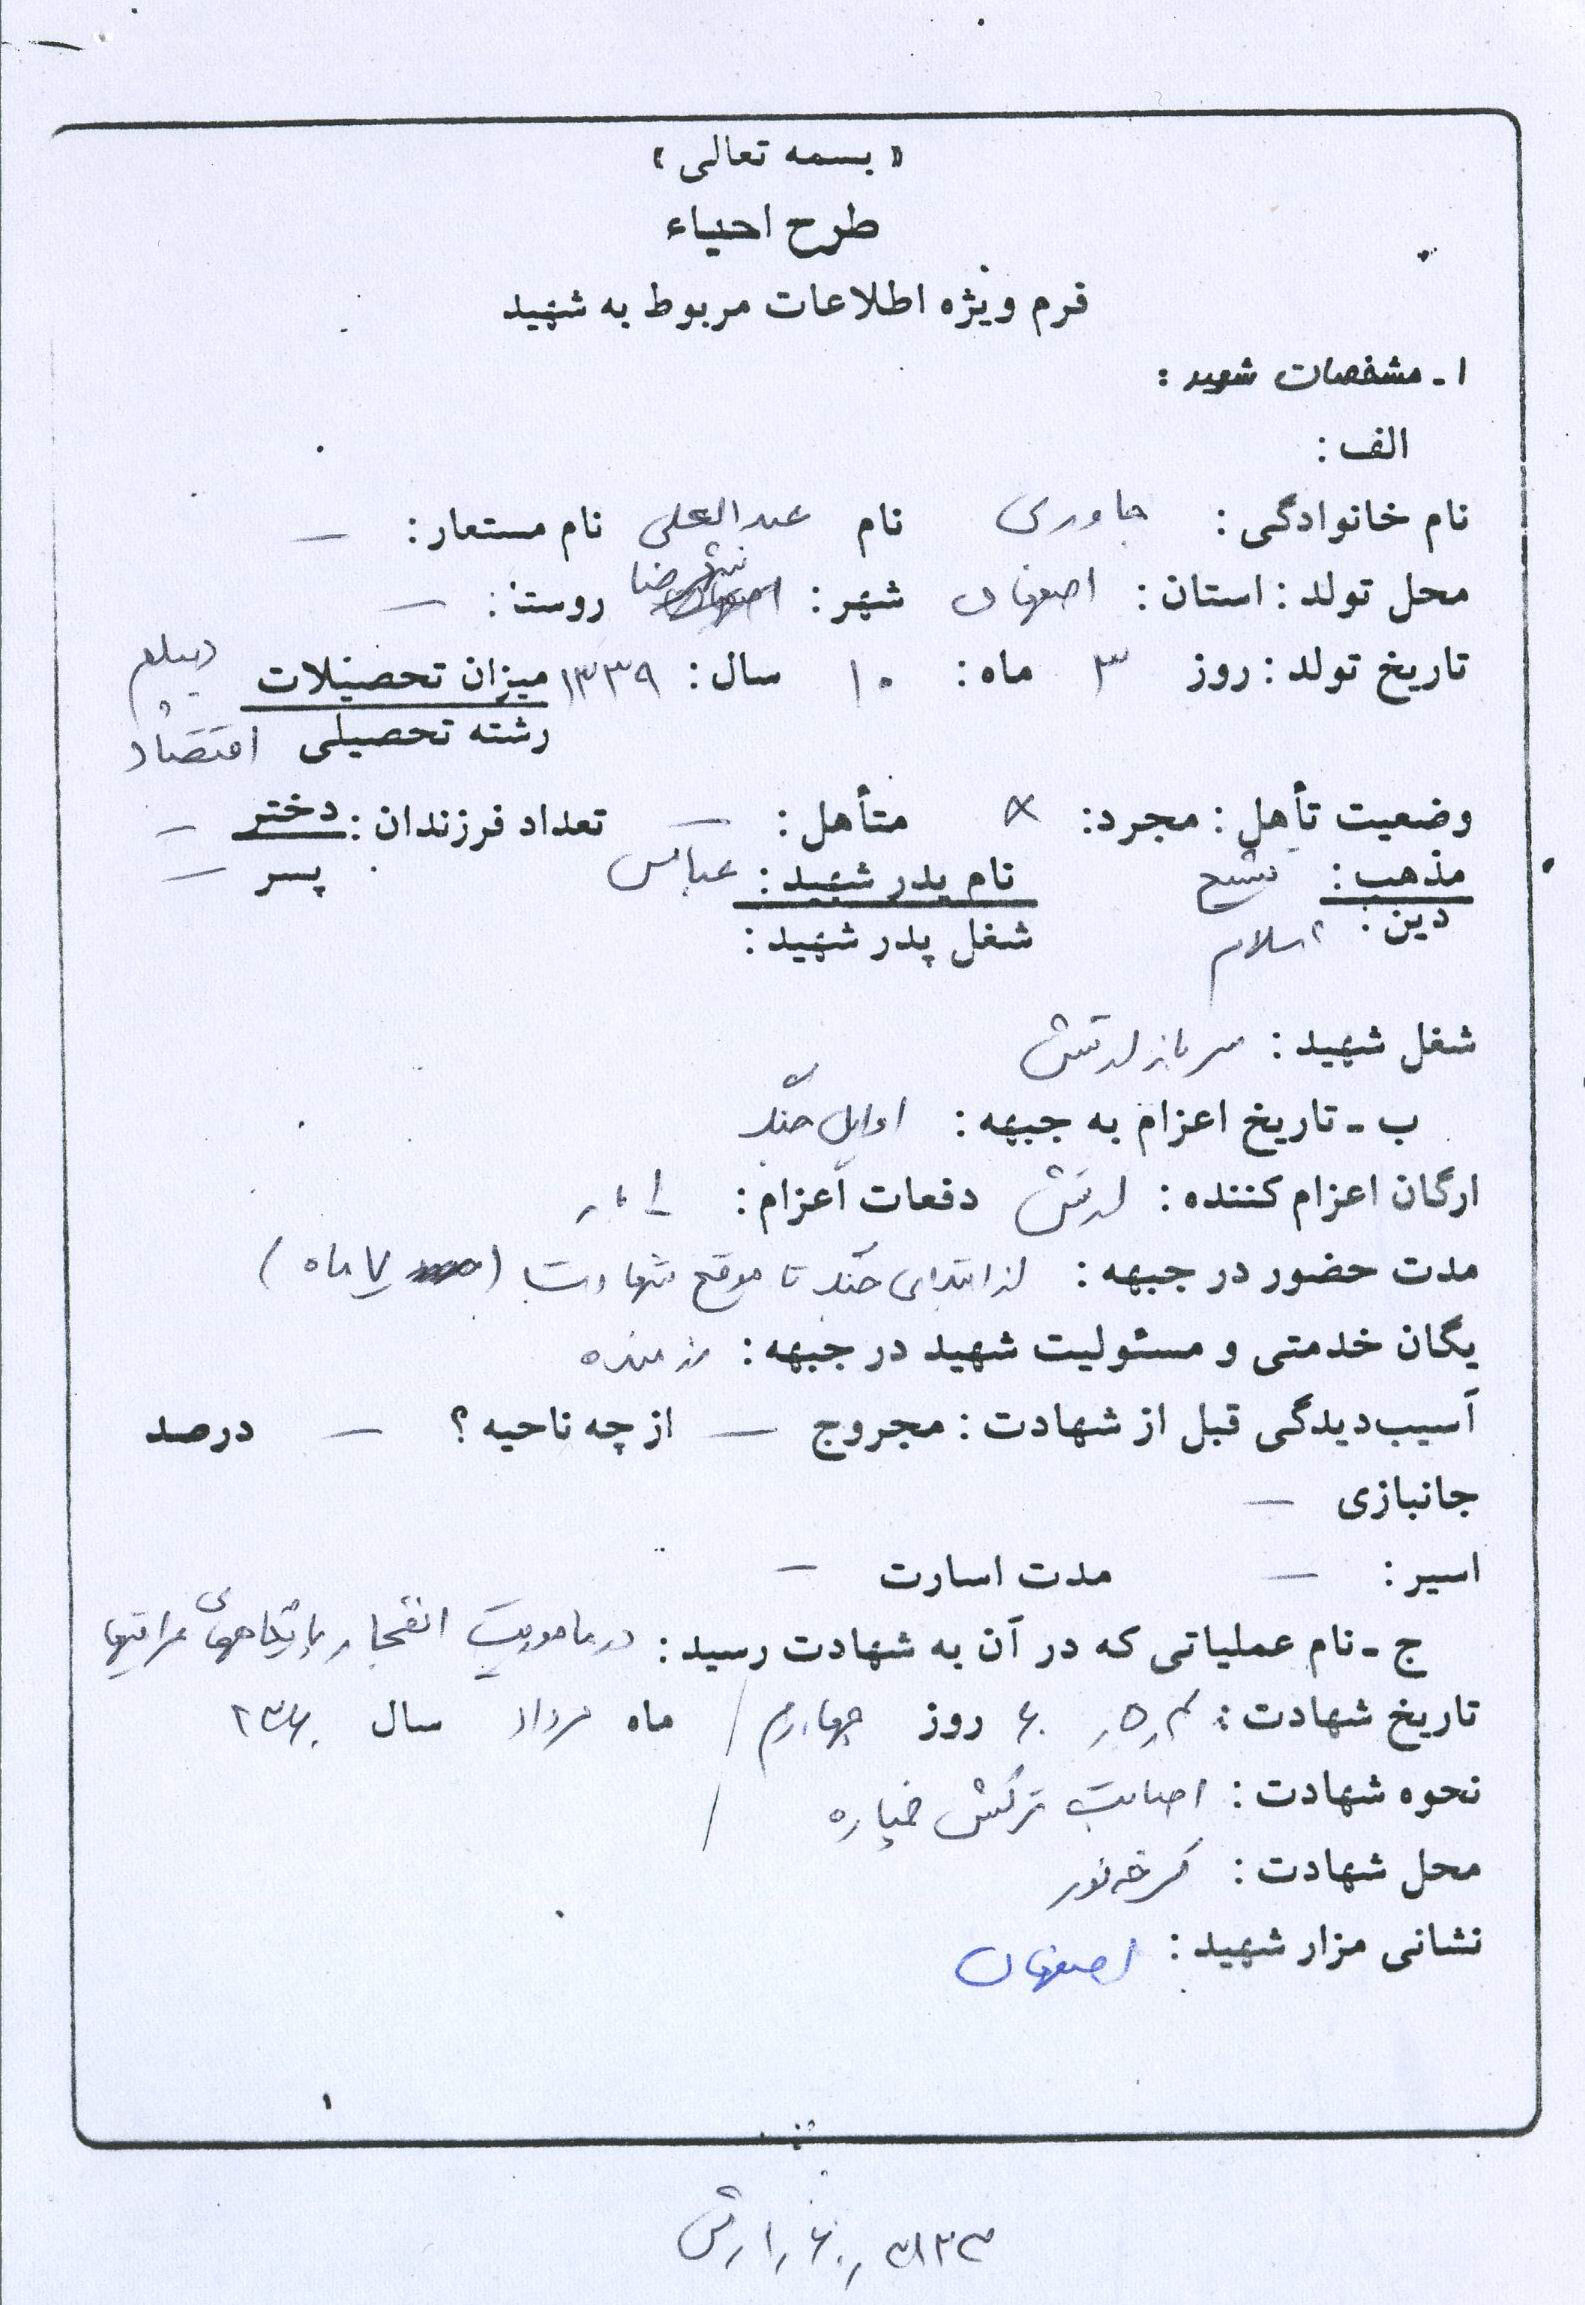 « بسمه تعالی »
طرح احیاء
فرم ویژه اطلاعات مربوط به شهید
۱ - مشخصات شهید :
الف :
نام خانوادگی : جاوری نام عبدالعلی نام مستعار : —
محل تولد : استان : اصفهان شهر : شهرضا روستا : —
تاریخ تولد : روز ۳ ماه : ۱۰ سال : ۱۳۳۹ میزان تحصیلات دیپلم
رشته تحصیلی اقتصاد
وضعیت تأهل : مجرد : × متأهل : — تعداد فرزندان : دختر —
مذهب : تشیع نام پدر شهید : عباس پسر —
دین : اسلام شغل پدر شهید :
شغل شهید : سرباز ارتش
ب - تاریخ اعزام به جبهه : اوایل جنگ
ارگان اعزام کننده : ارتش دفعات اعزام : ۱ بار
مدت حضور در جبهه : از ابتدای جنگ تا موقع شهادت ( ۷ ماه )
یگان خدمتی و مسئولیت شهید در جبهه : رزمنده
آسیب‌دیدگی قبل از شهادت : مجروح — از چه ناحیه ؟ — درصد
جانبازی —
اسیر : — مدت اسارت —
ج - نام عملیاتی که در آن به شهادت رسید : در ماموریت انفجار پایگاههای عراقیها
تاریخ شهادت : ۴ ر ۵ ر ۶۰ روز چهارم / ماه مرداد سال ۱۳۶۰
نحوه شهادت : اصابت ترکش خمپاره /
محل شهادت : کرخه نور
نشانی مزار شهید : اصفهان
۱